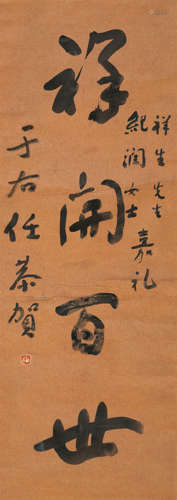 祥開百世
祥生先生
紀潤女士嘉礼
于右任恭賀